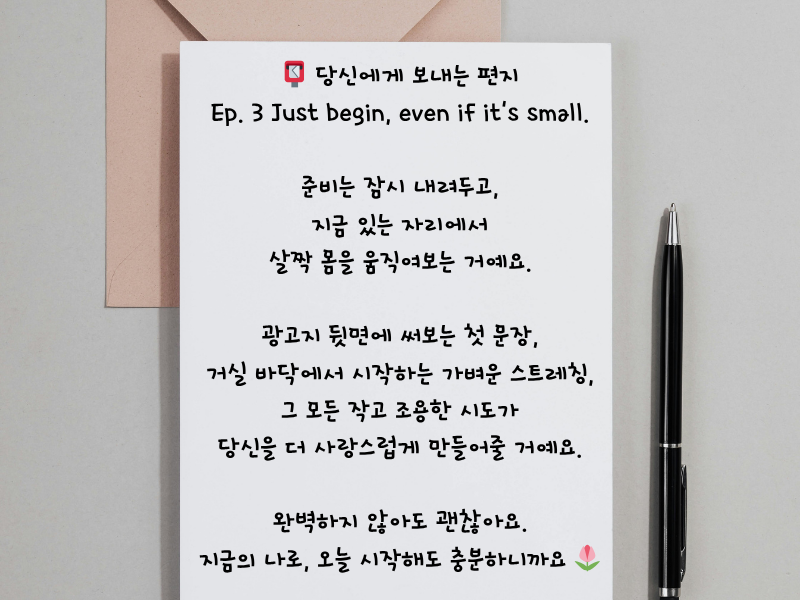 당신에게 보내는 편지
Ep. 3 Just begin, even if it's small.
준비는 잠시 내려두고,
지금 있는 자리에서
살짝 몸을 움직여보는 거예요.
광고지 뒷면에 써보는 첫 문장,
거실 바닥에서 시작하는 가벼운 스트레칭,
그 모든 작고 조용한 시도가
당신을 더 사랑스럽게 만들어줄 거예요.
완벽하지 않아도 괜찮아요.
지금의 나로, 오늘 시작해도 충분하니까요